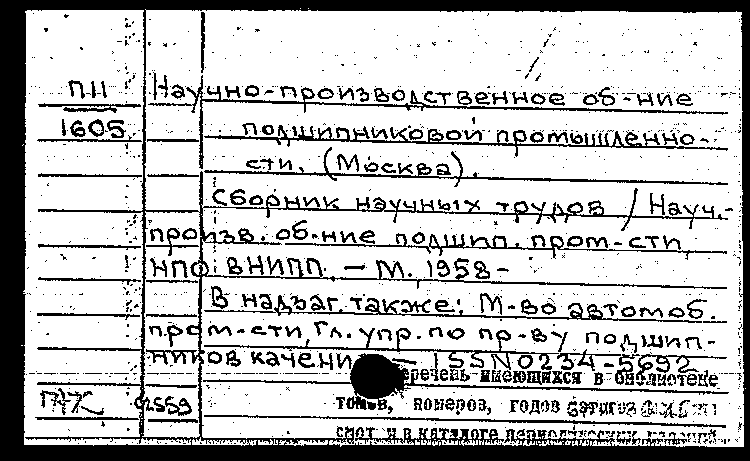 П11 Научно-производственное об-ние
1605 подшипниковой промышленно-
сти. (Москва).
Сборник научных трудов / Науч.-
произв. об-ние подшип. пром-сти,
НПО ВНИПП. — М., 1958 -
В надзаг. также: М-во автомоб.
пром-сти, Гл. упр. по пр-ву подшип-
ников качени — ISSN 0234-5692
еречень имеющихся в библиотеке
томов, номеров, годов
смотри в каталоге